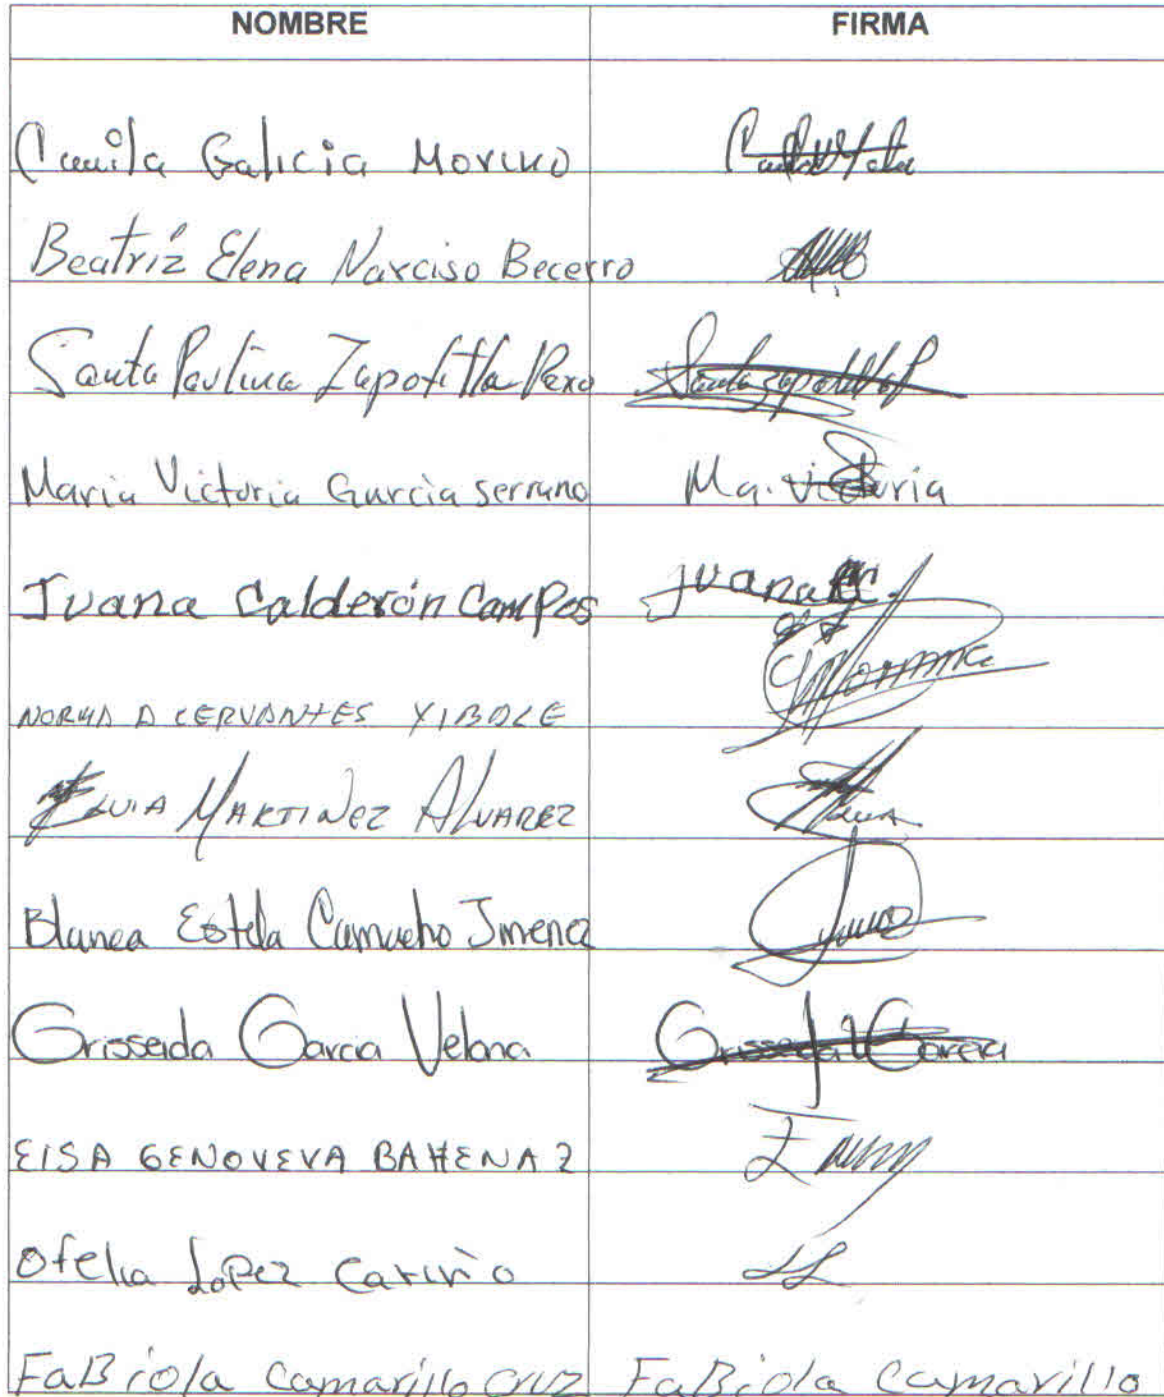 NOMBRE FIRMA
Camila Galicia Moreno
Beatríz Elena Narciso Becerro
Santa Paulina Zapotitla Pexo Santa Zapotitla P
Maria Victoria Garcia Serrano Ma. Victoria
Juana Calderón Campos Juana
NORMA A CERVANTES XIBOLE Norma
ELVIA MARTINEZ ALVAREZ
Blanca Estela Camacho Jmenez
Grisseida Garcia Velona Grisseida Garcia
ElSA GENOVEVA BAHENA Z
Ofelia Lopez Cariño
FaBiola Camarillo Cruz FaBiola Camarillo